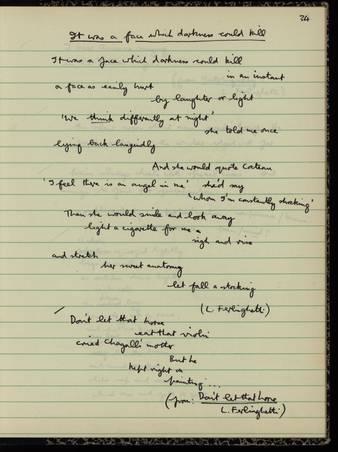 24
It was a face which darkness could kill
It was a face which darkness could kill
in an instant
a face as easily hurt
by laughter or light
'We think differently at night'
she told me once
lying back languidly
And she would quote Cocteau
'I feel there is an angel in me' she'd say
'whom I'm constantly shocking'
Then she would smile and look away
light a cigarette for me
sigh and rise
and stretch
her sweet anatomy
let fall a stocking
(L. Ferlinghetti)
Don't let that horse
eat that violin
cried Chagall's mother
But he
kept right on
painting ...
(from: Don't let that horse
L. Ferlinghetti)